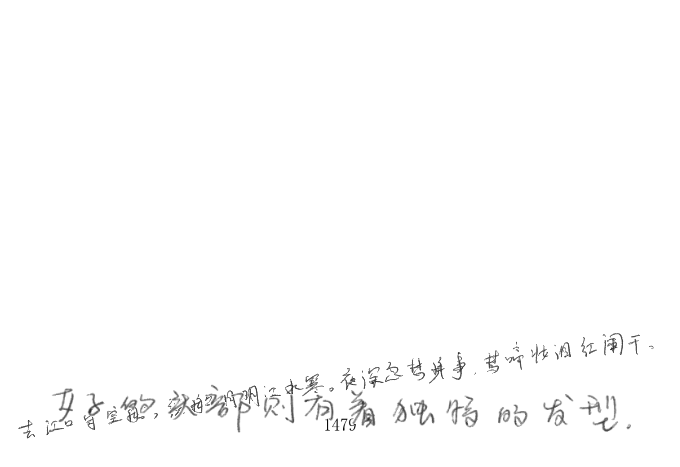 去江口守空船，绕船明月江水寒。夜深忽梦少年事，梦啼妆泪红阑干。
女子的头部则有着独特的发型.
1479